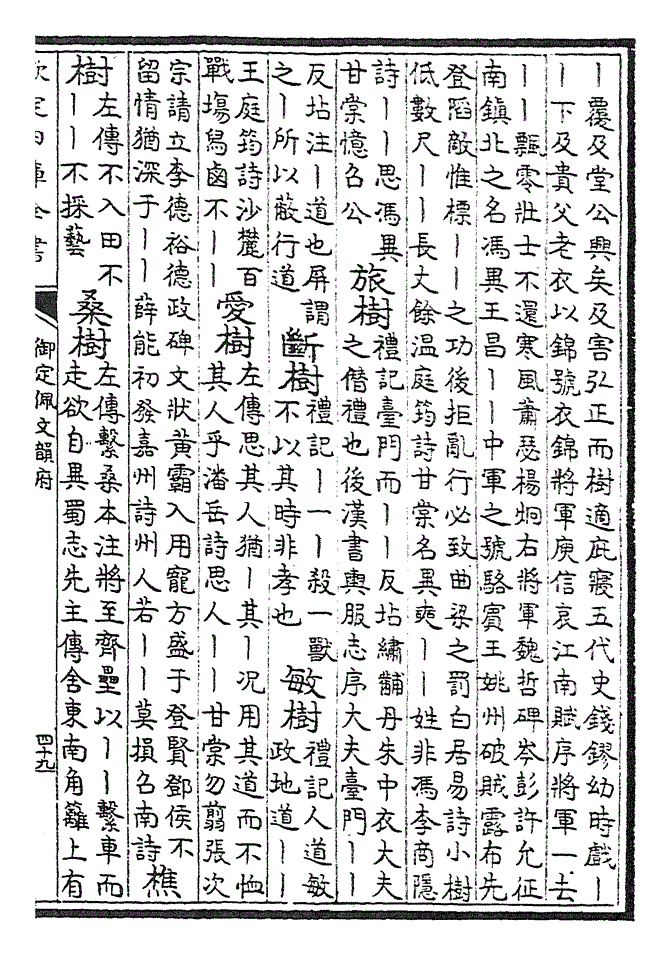 丨覆及堂公興矣及害弘正而樹適庇寢五代史錢鏐幼時戲丨
丨下及貴父老衣以錦號衣錦將軍庾信哀江南賦序將軍一去
丨丨飄零壯士不還寒風蕭瑟楊炯右將軍魏哲碑岑彭許允征
南鎮北之名馮異王昌丨丨中軍之號駱賓王姚州破賊露布先
登蹈敵惟標丨丨之功後拒亂行必致曲梁之罰白居易詩小樹
低數尺丨丨長丈餘温庭筠詩甘棠名異奭丨丨姓非馮李商隱
詩丨丨思馮異
甘棠憶召公
旅樹
禮記臺門而丨丨反坫繡黼丹朱中衣大夫
之僭禮也後漢書輿服志序大夫臺門丨丨
反坫注丨道也屏謂
之丨所以蔽行道
斷樹
禮記丨一丨殺一獸
不以其時非孝也
敏樹
禮記人道敏
政地道丨丨
王庭筠詩沙麓百
戰塲舄鹵不丨丨
愛樹
左傳思其人猶丨其丨况用其道而不恤
其人乎潘岳詩思人丨丨甘棠勿翦張次
宗請立李德裕德政碑文狀黄霸入用寵方盛于登賢鄧侯不
留情猶深于丨丨薛能初發嘉州詩州人若丨丨莫損召南詩
樵
樹
左傳不入田不
丨丨不採藝
桑樹
左傳繫桑本注將至齊壘以丨丨繫車而
走欲自異蜀志先主傳舍東南角籬上有
欽定四庫全書
御定佩文韻府
四十九